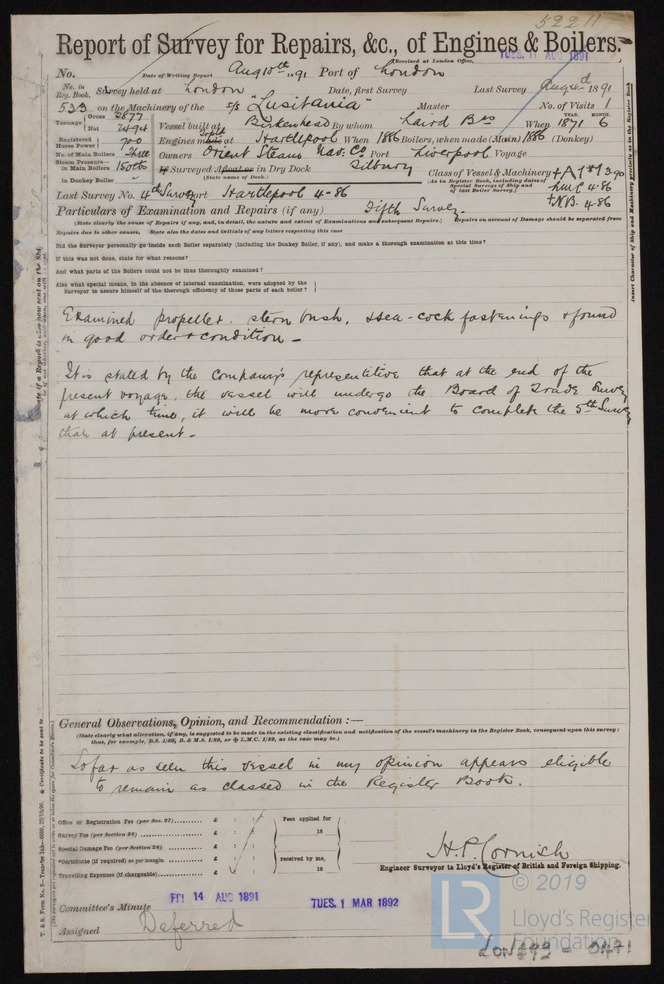 52211
Report of Survey for Repairs, &c., of Engines & Boilers.
Received at London Office, TUES. 11 AUG 1891
No. Date of Writing Report Aug 10th 1891 Port of London
No. in Reg. Book. Survey held at London Date, first Survey Last Survey 1891
533 on the Machinery of the S/S "Lusitania" Master No. of Visits 1
Tonnage Gross 3877 Net 2494 Vessel built at Birkenhead By whom Laird Bros When YEAR. 1871 MONTH. 6
Registered Horse Power 700 Engines made at Hartlepool When 1886 Boilers, when made (Main) 1886 (Donkey)
No. of Main Boilers Three Owners Orient Steam Nav. Co Port Liverpool Voyage
Steam Pressure in Main Boilers 150 lbs If Surveyed Afloat or in Dry Dock Tilbury
in Donkey Boiler (State name of Dock.)
Class of Vessel & Machinery +A1
(As in Register Book, including dates of Special Surveys of Ship and of last Boiler Survey.) LMC 4.86
+NB. 4.86
Last Survey No. 4th Survey Port Hartlepool 4-86
Particulars of Examination and Repairs (if any) Fifth Survey.
(State clearly the cause of Repairs if any, and, in detail, the nature and extent of Examinations and subsequent Repairs.) Repairs on account of Damage should be separated from
Repairs due to other causes. State also the dates and initials of any letters respecting this case
Did the Surveyor personally go inside each Boiler separately (including the Donkey Boiler, if any), and make a thorough examination at this time?
If this was not done, state for what reasons?
And what parts of the Boilers could not be thus thoroughly examined?
Also what special means, in the absence of internal examination, were adopted by the
Surveyor to assure himself of the thorough efficiency of those parts of each boiler?
Examined propeller, stern bush, & sea-cock fastenings & found
in good order & condition -
It is stated by the Company's representitive that at the end of the
present voyage, the vessel will undergo the Board of Trade Survey
at which time, it will be more convenient to complete the 5th Survey
than at present -
General Observations, Opinion, and Recommendation :—
(State clearly what alteration, if any, is suggested to be made in the existing classification and notification of the vessel's machinery in the Register Book, consequent upon this survey:
thus, for example, B.S. 1/89, B. & M.S. 1/89, or L.M.C. 1/89, as the case may be.)
So far as seen this vessel in my opinion appears eligible
to remain as classed in the Register Book.
Office or Registration Fee (per Sec. 27) £ : : Fees applied for
Survey Fee (per Section 28) £ : : 18
Special Damage Fee (per Section 28) £ : :
*Certificate (if required) as per margin £ : : received by me,
Travelling Expenses (if chargeable) £ : : 18
H.P. Cornish
Engineer Surveyor to Lloyd's Register of British and Foreign Shipping.
Committee's Minute FRI 14 AUG 1891 TUES. 1 MAR 1892
Assigned Deferred
LR © 2019
Lloyd's Register
Foundation
LON 693 - 0471
Insert Character of Ship and Machinery precisely as in the Register Book